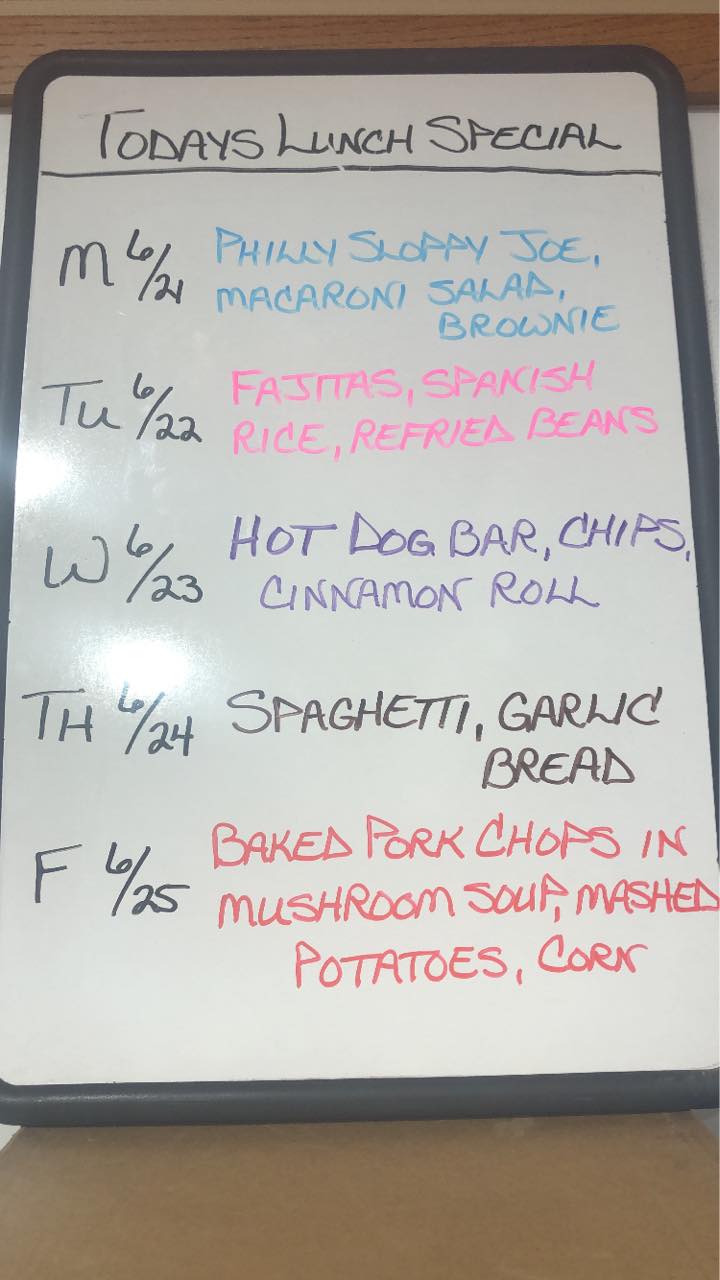 TODAYS LUNCH SPECIAL
M 6/21 PHILLY SLOPPY JOE,
MACARONI SALAD,
BROWNIE
TU 6/22 FAJITAS, SPANISH
RICE, REFRIED BEANS
W 6/23 HOT DOG BAR, CHIPS,
CINNAMON ROLL
TH 6/24 SPAGHETTI, GARLIC
BREAD
F 6/25 BAKED PORK CHOPS IN
MUSHROOM SOUP, MASHED
POTATOES, CORN